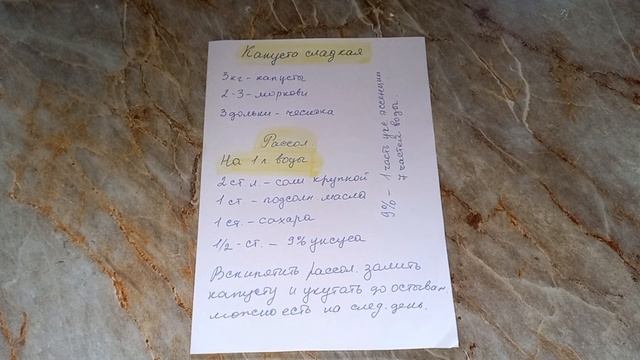 Капуста сладкая
3 кг - капусты
2-3 - моркови
3 дольки - чеснока
Рассол
На 1 л. воды
2 ст. л - соли крупной
1 ст - подсолн масла
1 ст. - сахара
1/2 - ст. - 9% уксуса
Вскипятить рассол. залить
капусту и укутать до остыван
можно есть на след. день.
9% - 1 часть укс эссенции
7 частей воды.